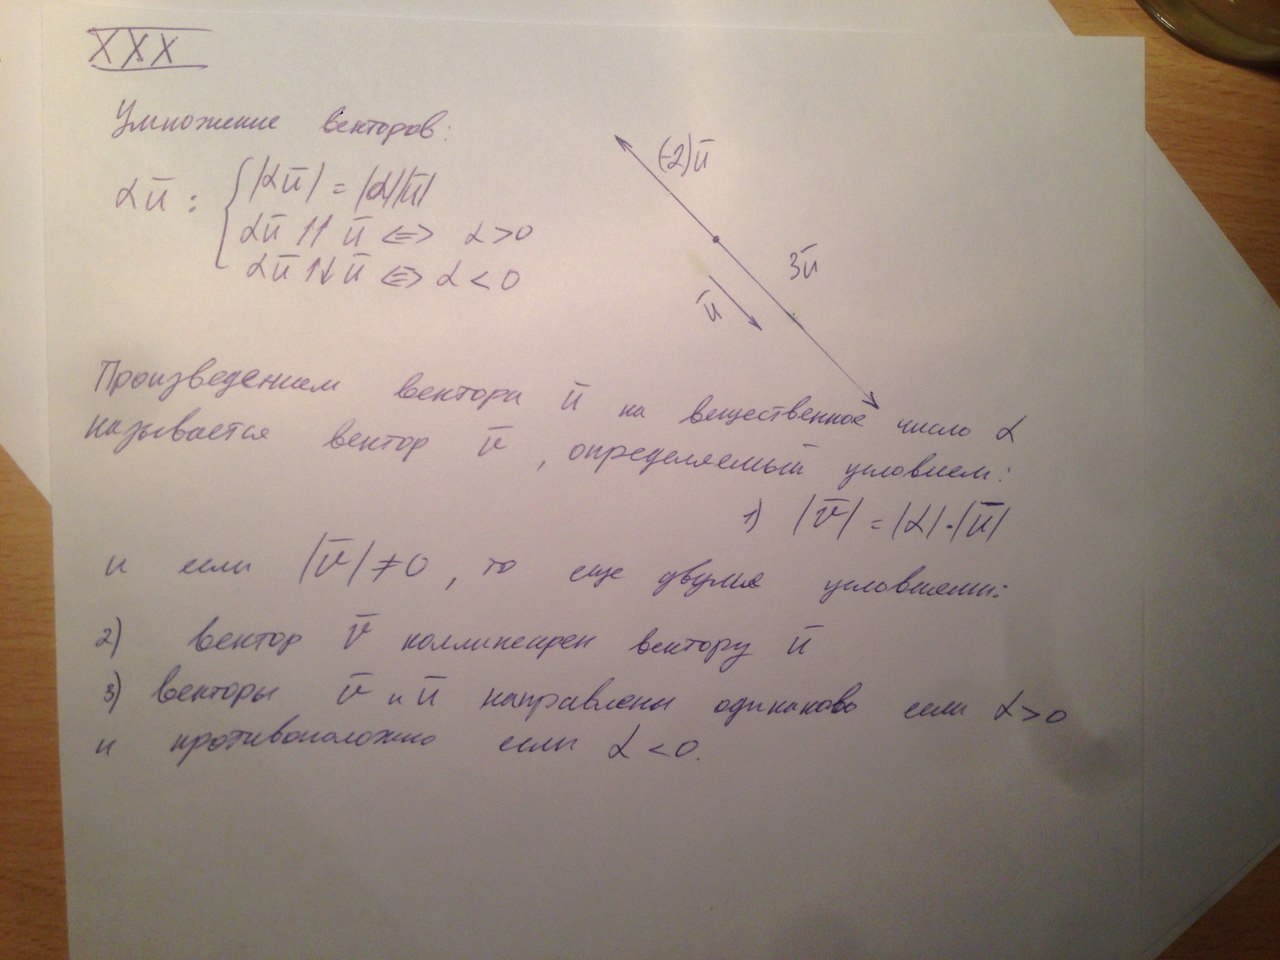 XXX
Умножение векторов:
αū : { |αū| = |α||ū|
αū ↑↑ ū <=> α > 0
αū ↑↓ ū <=> α < 0
(-2)ū
3ū
ū
Произведением вектора ū на вещественное число α
называется вектор v̄, определяемый условием:
1) |v̄| = |α|·|ū|
и если |v̄| ≠ 0, то еще двумя условиями:
2) вектор v̄ коллинеарен вектору ū
3) векторы v̄ и ū направлены одинаково если α > 0
и противоположно если α < 0.